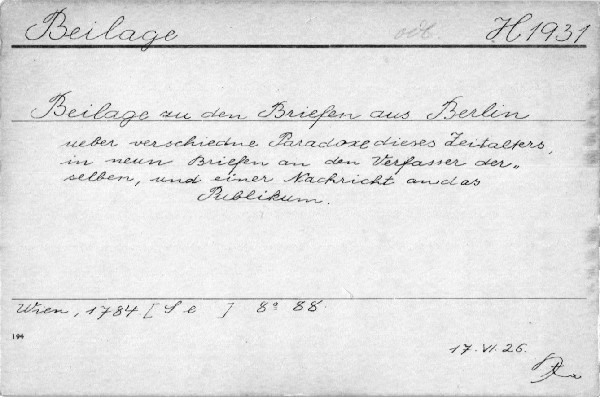 Beilage H1931
Beilage zu den Briefen aus Berlin
ueber verschiedne Paradoxe dieses Zeitalters,
in neun Briefen an den Verfasser der„
selben, und einer Nachricht an das
Publikum.
Wien, 1784 [S e ] 8° 88.
194
17. VI. 26.